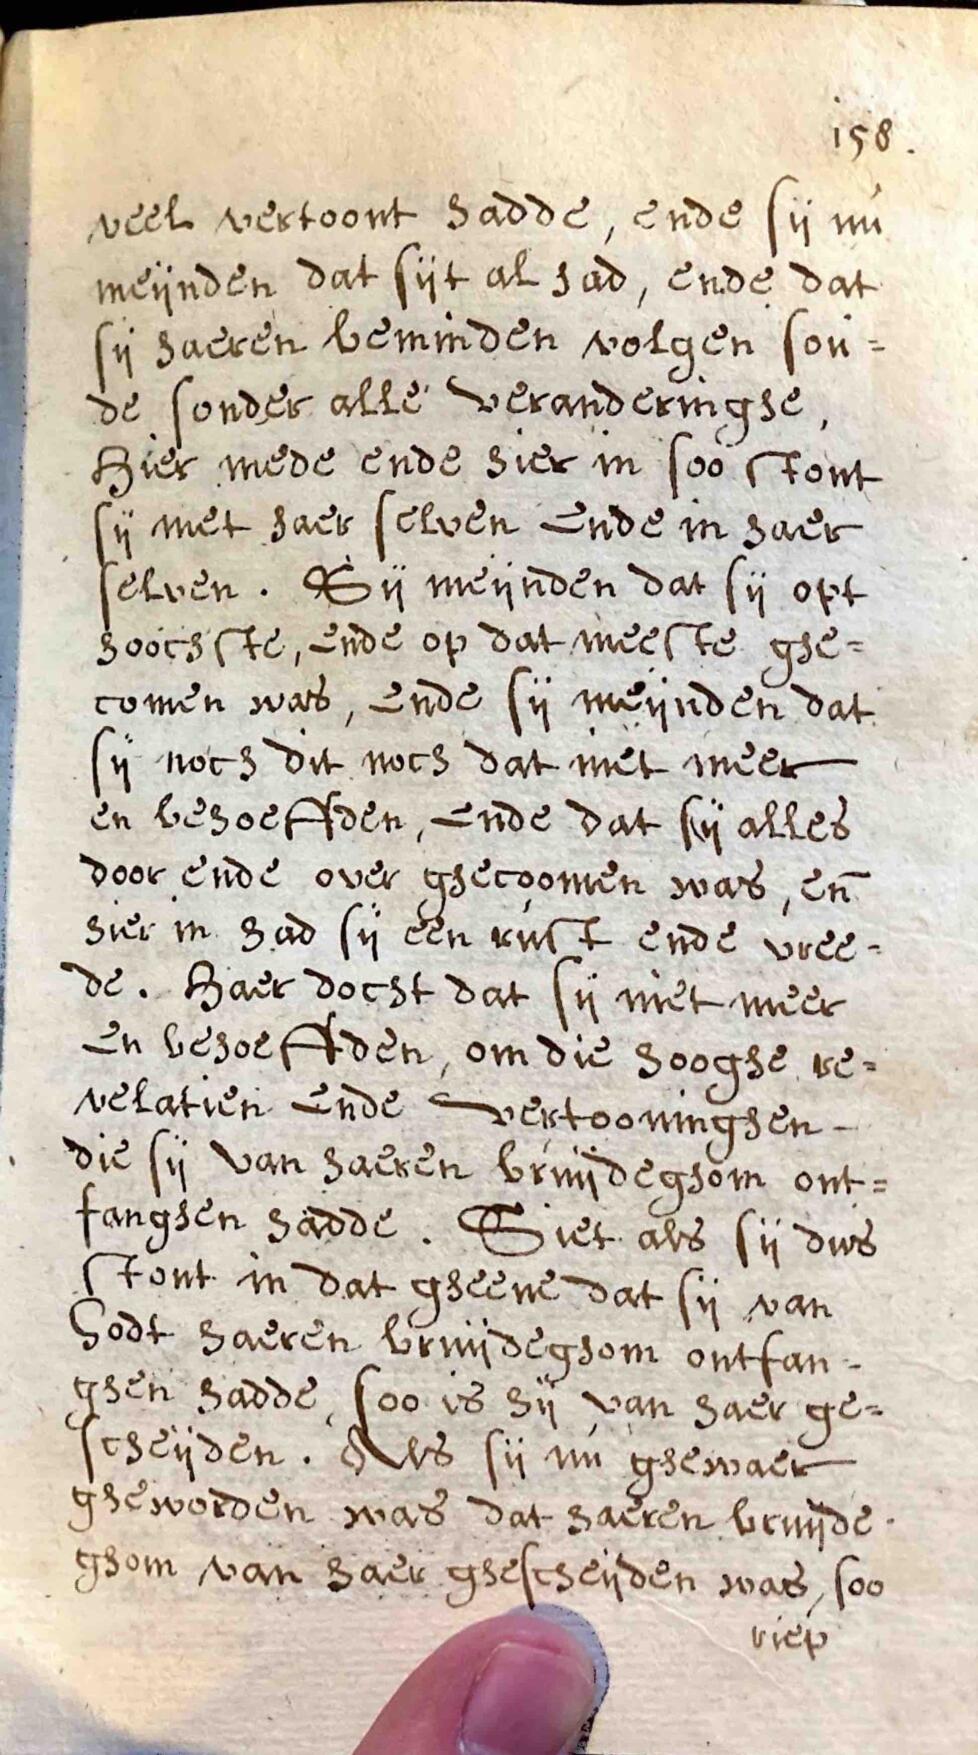 158.
veel vertoont hadde, ende sij nú
meijnden dat sijt al had, ende dat
sij haeren beminden volgen soú=
de sonder alle veranderinghe,
Hier mede ende hier in soo stont
sij met haer selven ende in haer
selven. Sij meijnden dat sij opt
hoochste, ende op dat meeste ghe=
comen was, ende sij meijnden dat
sij noch dit noch dat niet meer
en behoeffden, ende dat sij alles
door ende over ghecoomen was, en̄
hier in had sij een rust ende vree=
de. Haer docht dat sij niet meer
en behoeffden, om die hooghe re=
velatien ende vertooninghen
die sij van haeren bruijdeghom ont=
fanghen hadde. Siet als sij dus
stont in dat gheene dat sij van
Godt haeren bruijdeghom ontfan=
ghen hadde, soo is hij van haer ge=
scheijden. Als sij nú ghewaer
gheworden was dat haeren bruijde=
ghom van haer ghescheijden was, soo
riep